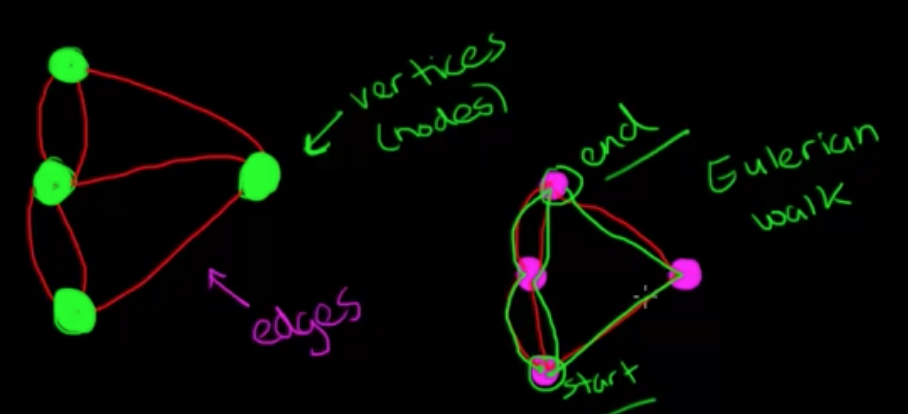 vertices
(nodes)
edges
end
Eulerian
walk
start